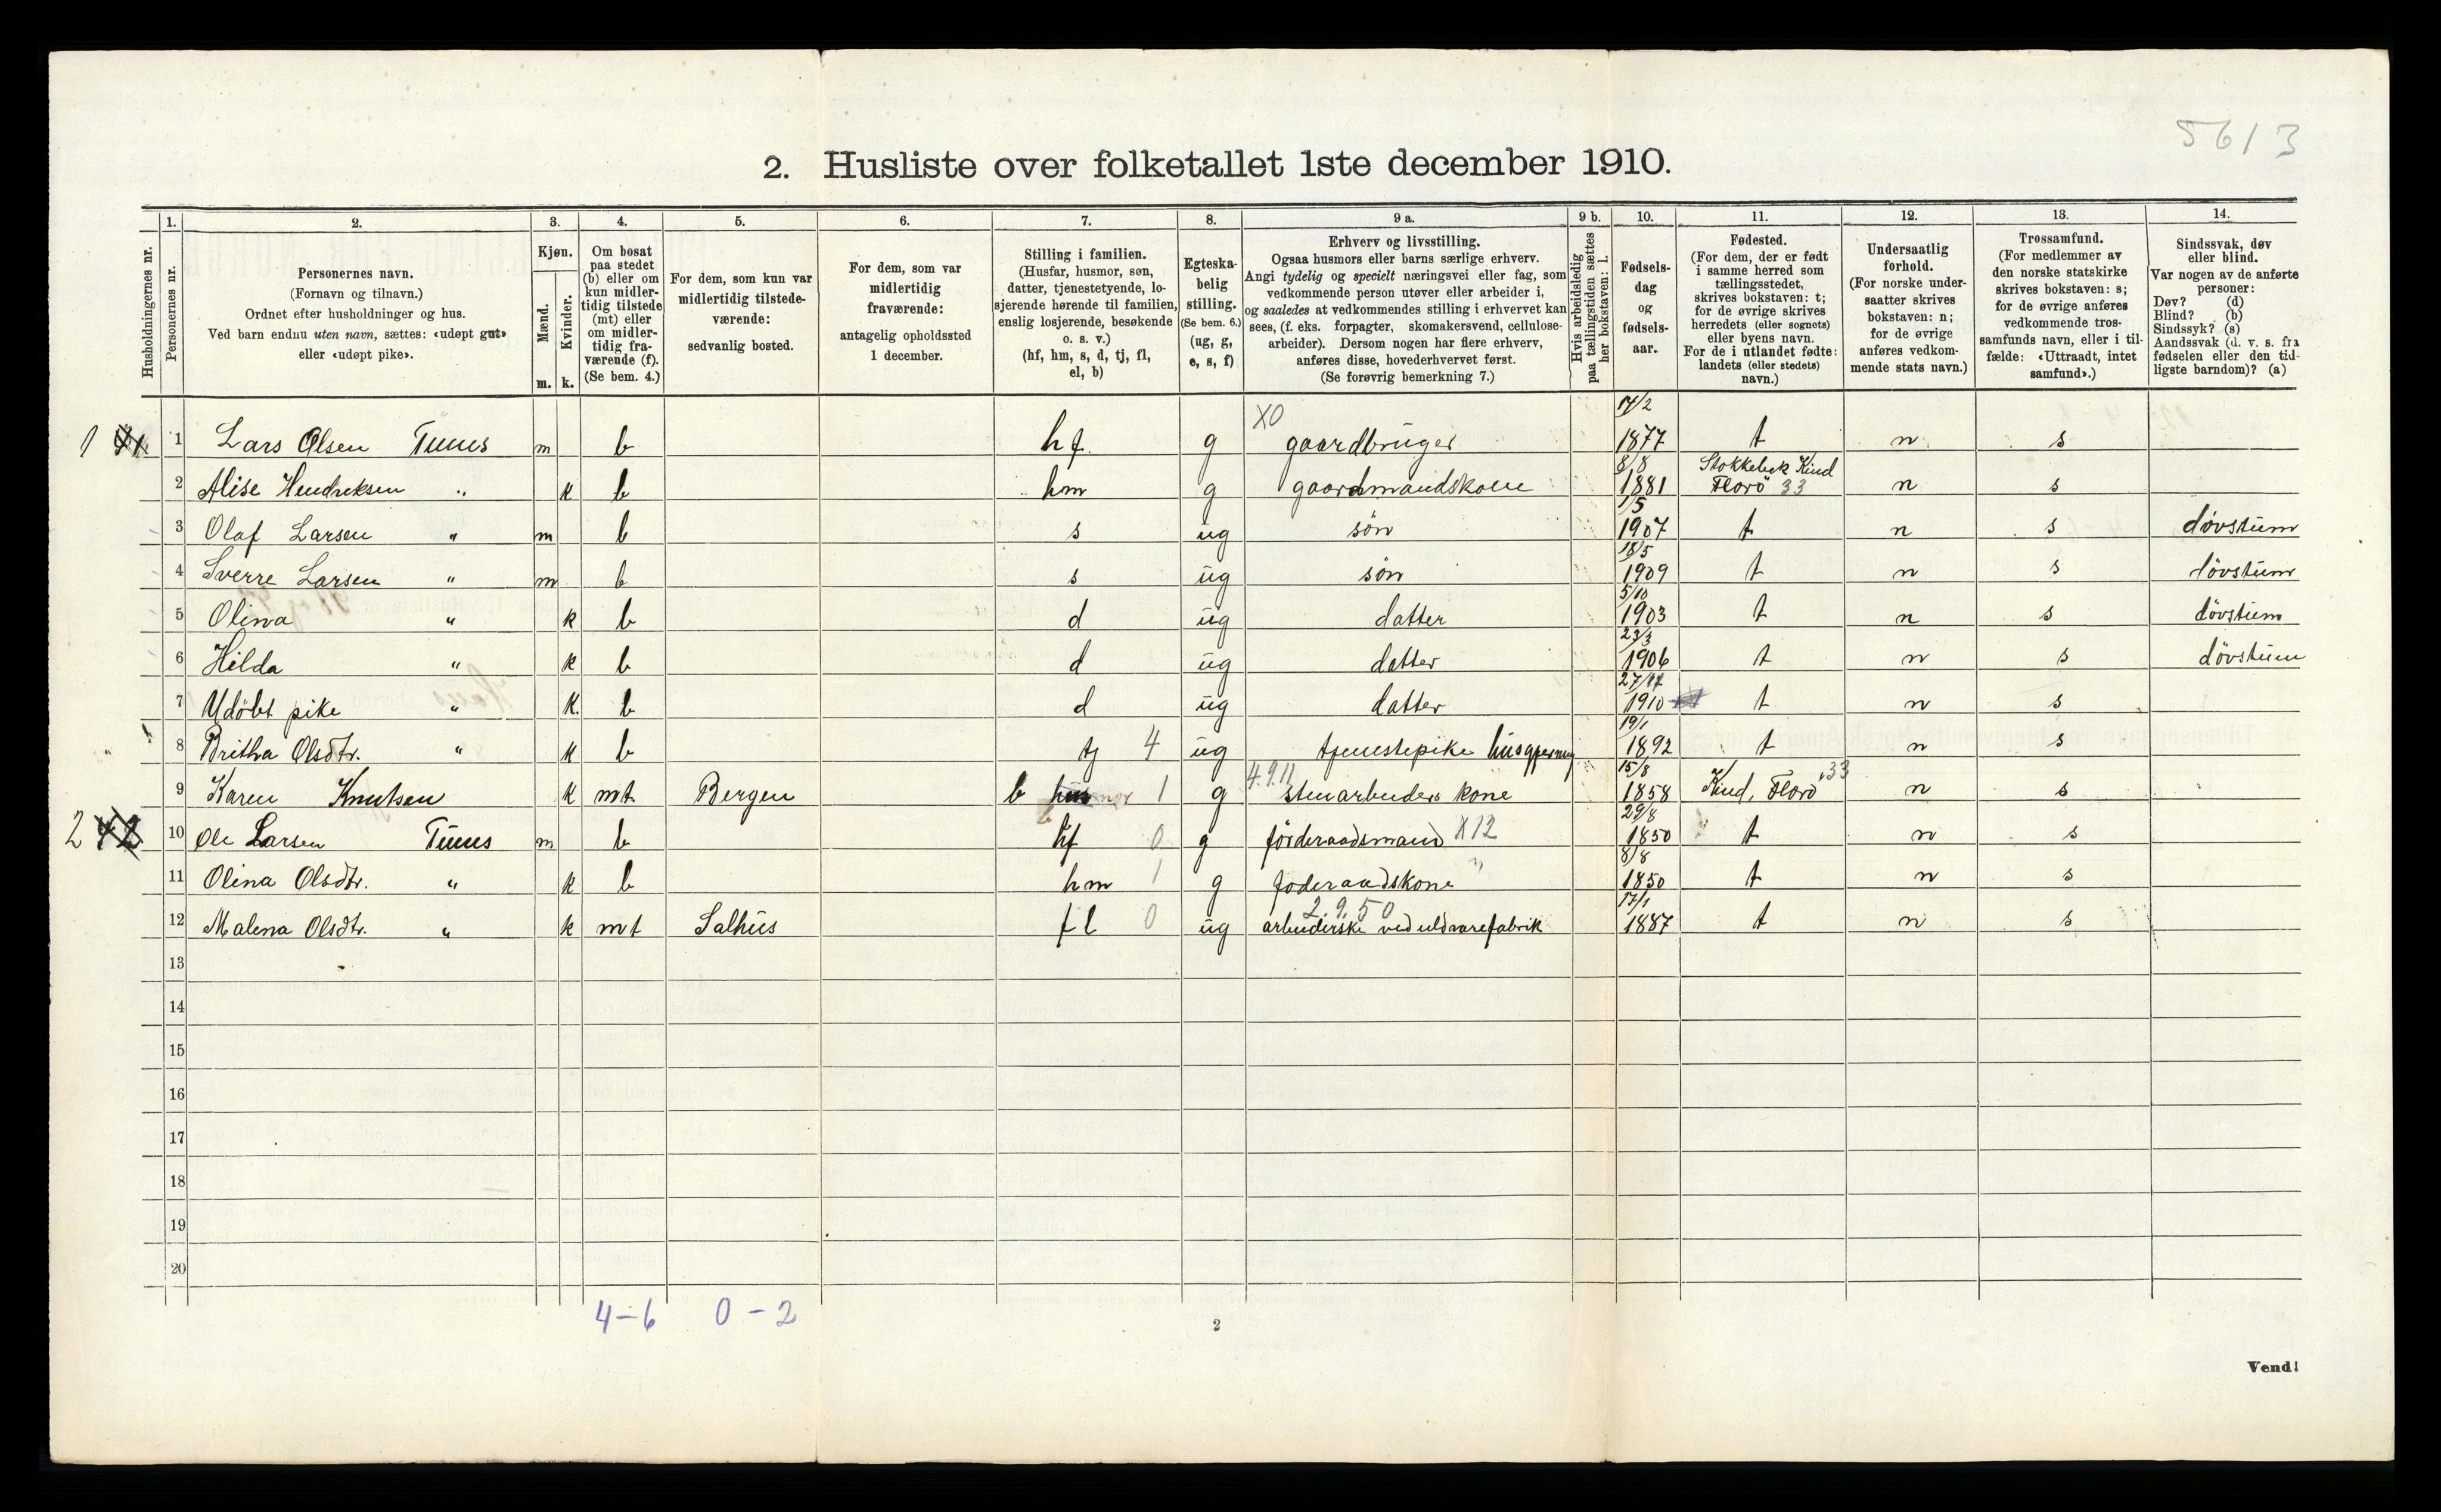 5613
2. Husliste over folketallet 1ste december 1910.
Husholdningernes nr.
1.
Personernes nr.
2.
Personernes navn.
(Fornavn og tilnavn.)
Ordnet efter husholdninger og hus.
Ved barn endnu uten navn, sættes: «udøpt gut»
eller «udøpt pike».
3.
Kjøn.
Mænd.
Kvinder.
m. k.
4.
Om bosat
paa stedet
(b) eller om
kun midler-
tidig tilstede
(mt) eller
om midler-
tidig fra-
værende (f).
(Se bem. 4.)
5.
For dem, som kun var
midlertidig tilstede-
værende:
sedvanlig bosted.
6.
For dem, som var
midlertidig
fraværende:
antagelig opholdssted
1 december.
7.
Stilling i familien.
(Husfar, husmor, søn,
datter, tjenestetyende, lo-
sjerende hørende til familien,
enslig losjerende, besøkende
o. s. v.)
(hf, hm, s, d, tj, fl,
el, b)
8.
Egteska-
belig
stilling.
(Se bem. 6.)
(ug, g,
e, s, f)
9 a.
Erhverv og livsstilling.
Ogsaa husmors eller barns særlige erhverv.
Angi tydelig og specielt næringsvei eller fag, som
vedkommende person utøver eller arbeider i,
og saaledes at vedkommendes stilling i erhvervet kan
sees, (f. eks. forpagter, skomakersvend, cellulose-
arbeider). Dersom nogen har flere erhverv,
anføres disse, hovederhvervet først.
(Se forøvrig bemerkning 7.)
9 b.
Hvis arbeidsledig
paa tællingstiden sættes
her bokstaven: l.
10.
Fødsels-
dag
og
fødsels-
aar.
11.
Fødested.
(For dem, der er født
i samme herred som
tællingsstedet,
skrives bokstaven: t;
for de øvrige skrives
herredets (eller sognets)
eller byens navn.
For de i utlandet fødte:
landets (eller stedets)
navn.)
12.
Undersaatlig
forhold.
(For norske under-
saatter skrives
bokstaven: n;
for de øvrige
anføres vedkom-
mende stats navn.)
13.
Trossamfund.
(For medlemmer av
den norske statskirke
skrives bokstaven: s;
for de øvrige anføres
vedkommende tros-
samfunds navn, eller i til-
fælde: «Uttraadt, intet
samfund».)
14.
Sindssvak, døv
eller blind.
Var nogen av de anførte
personer:
Døv? (d)
Blind? (b)
Sindssyk? (s)
Aandssvak (d. v. s. fra
fødselen eller den tid-
ligste barndom)? (a)
1 41 1 Lars Olsen Tunes m b hf g X0 gaardbruger 14/2 1877 t n s
2 Alise Hendreksen " k b hm g gaardmandskone 8/8 1881 Stokkebek Kind Florö 33 n s
3 Olaf Larsen " m b s ug sön 1/5 1907 t n s dövstum
4 Sverre Larsen " m b s ug sön 18/5 1909 t n s dövstum
5 Olina " k b d ug datter 5/10 1903 t n s dövstum
6 Hilda " k b d ug datter 23/3 1906 t n s dövstum
7 Udöbt pike " k. b d ug datter 27/11 1910 t n s
8 Britha Olsdtr. " k b tj 4 ug tjenestepike husgjerning 19/1 1892 t n s
9 Karen Knutsen k mt Bergen b husmor 1 g 4.9.11 stenarbeiders kone 15/8 1858 Kind, Florö 33 n s
2 42 10 Ole Larsen Tunes m b hf 0 g förderaadsmand X12 29/8 1850 t n s
11 Olina Olsdtr. " k b hm 1 g foderaadskone " 8/8 1850 t n s
12 Malena Olsdtr. " k mt Salhus fl 0 ug 2.9.50 arbeiderske ved uldvarefabrik 17/1 1887 t n s
13
14
15
16
17
18
19
20
4-6 0-2
2
Vend!